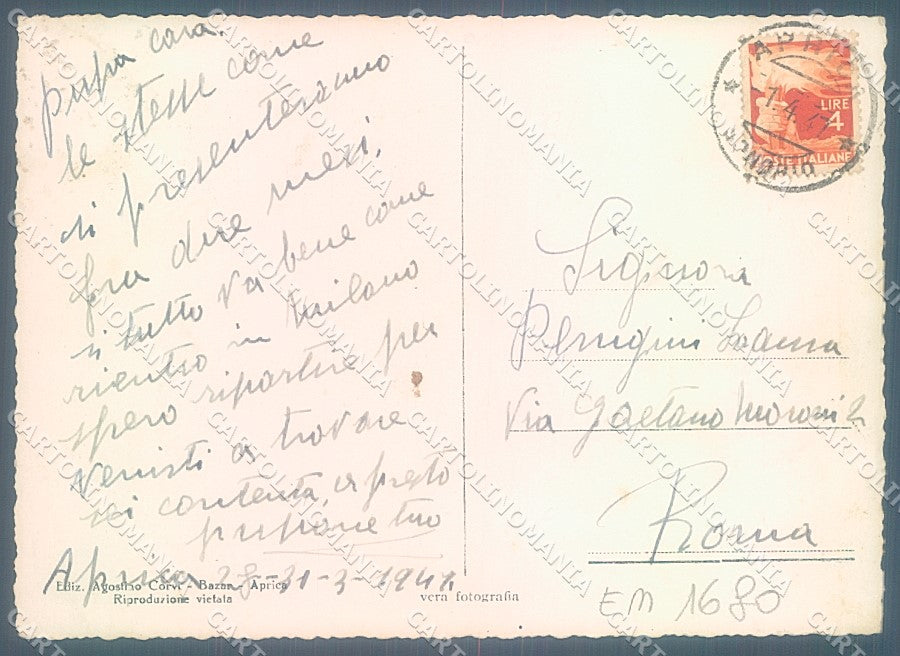 pupa cara.
le stesse come
si presenteranno
fra due mesi,
si tutto va bene come
rientro in Milano
spero ripartire per
venirti a trovare
sei contenta, a presto
pupone tuo
Aprica 28-31-3-1947
Ediz. Agostino Corvi - Bazar - Aprica
Riproduzione vietata
vera fotografia
APRICA
1.4.47
SONDRIO
LIRE
4
POSTE ITALIANE
Signora
Perugini Ivanna
Via Gaetano Moroni 2
Roma
EM 1680
CARTOLINOMANIA